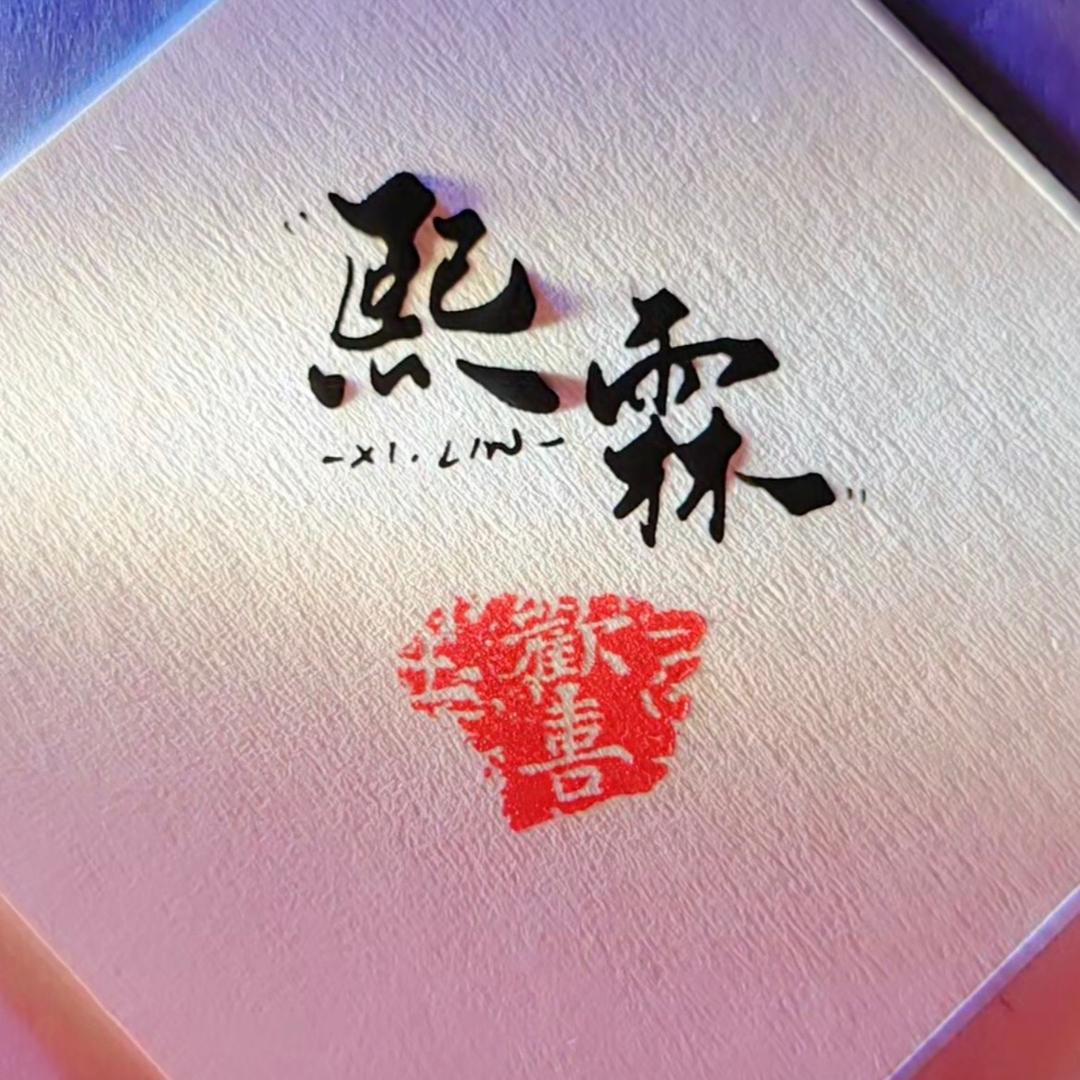 "熙霖"
-XI.LIN-
歡喜